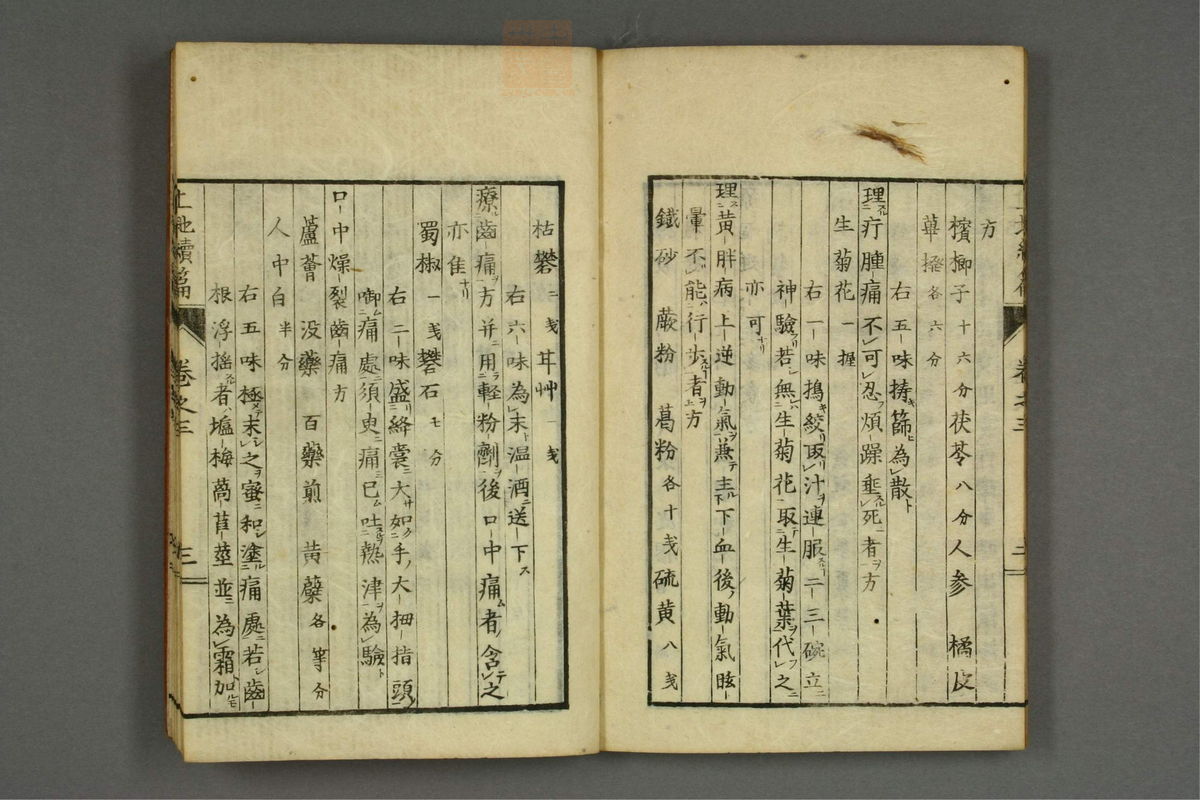 方
檳榔子十六分茯苓八分人参 橘皮
蓽撥各六分
右五味擣篩為散
理疔腫痛不可忍煩躁垂死者方
生菊花一握
右一味搗絞取汁連服二三碗立
神驗若無生菊花取生菊葉代之
亦可
理黄胖病上逆動氣兼主下血後動氣眩
暈不能行歩者方
鐵砂 蕨粉 葛粉各十戔硫黄八戔
枯礬二戔 艸一戔
右六味為末温酒送下
療齒痛方并用輕粉劑後口中痛者含之
亦佳
蜀椒一戔礬石七分
右二味盛絡嚢大如手大拇指頭
啣痛處須臾痛已吐熱津為驗
口中燥裂齒痛方
蘆薈 没藥 百藥煎 黄蘗各等分
人中白半分
右五味極末之蜜和塗痛處若齒
根浮揺者塩梅萵苣莖並為霜加
續篇 卷之三 三